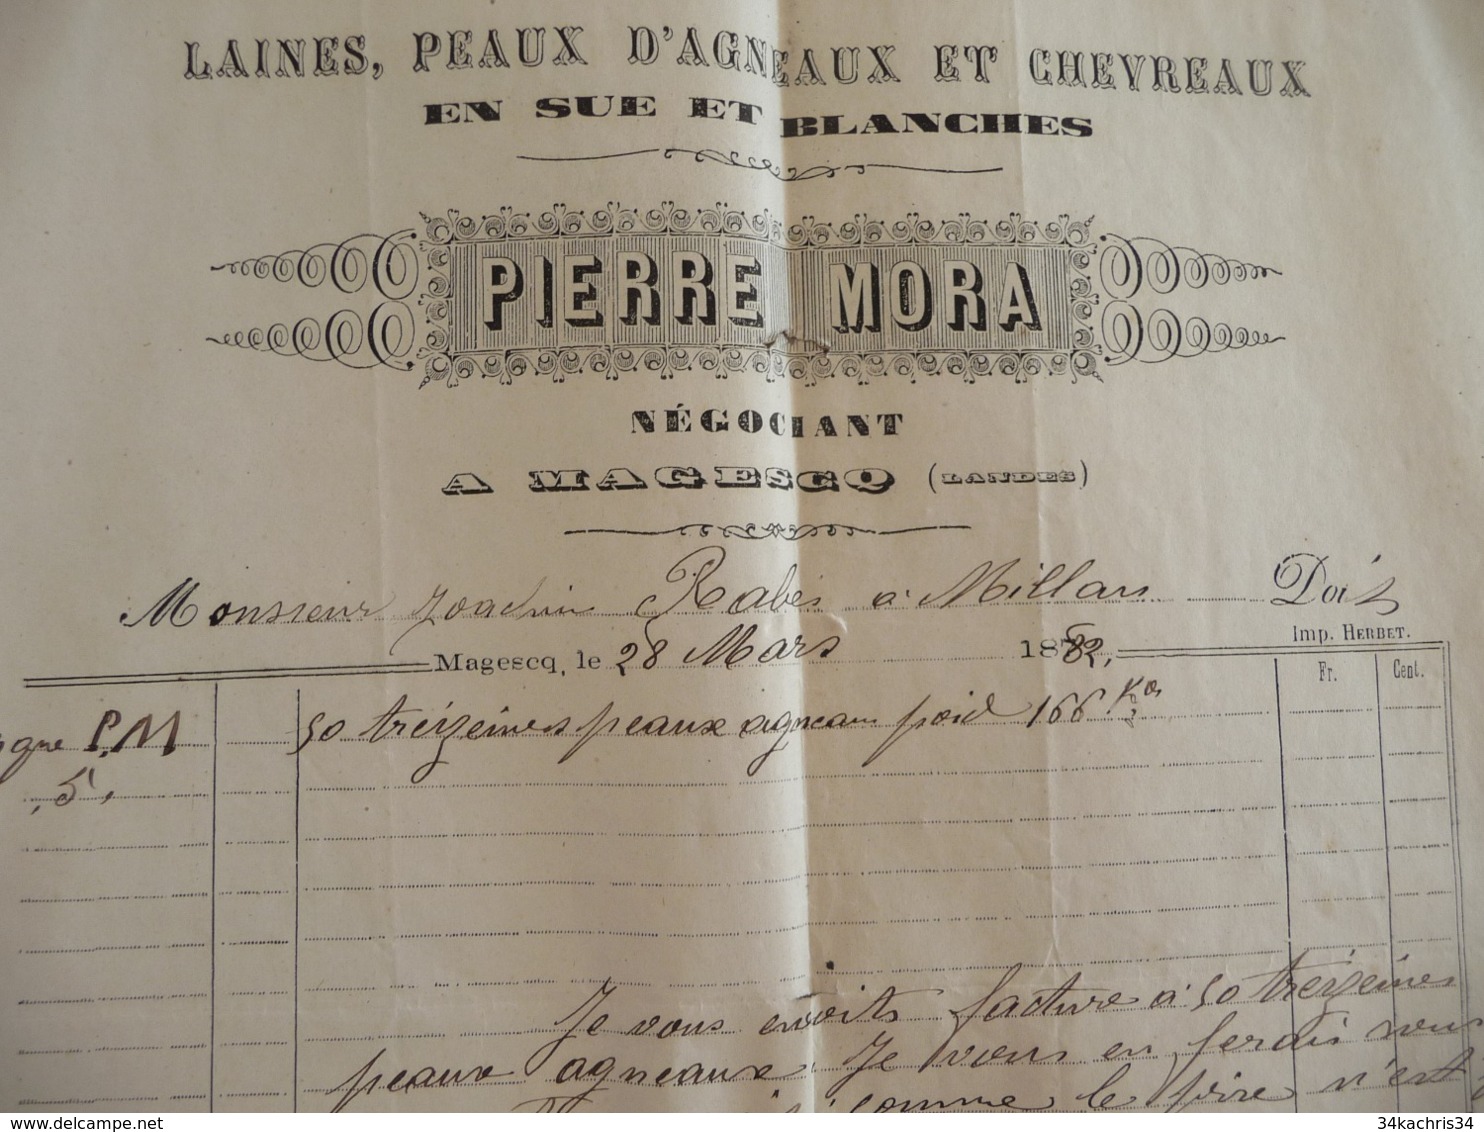 LAINES, PEAUX D'AGNEAUX ET CHEVREAUX
EN SUE ET BLANCHES
PIERRE MORA
NÉGOCIANT
A MAGESCQ (LANDES)
Monsieur Joachim Rabés a Millau Doit
Imp. HERBET.
Magescq, le 28 Mars 1882,
Fr. Cent.
que P.M 50 treizeines peaux agneau poid 166 Kos
5,
Je vous envoits facture à 50 treizeines
peaux agneaux. Je vous en ferais
comme le n'est
34kachris34